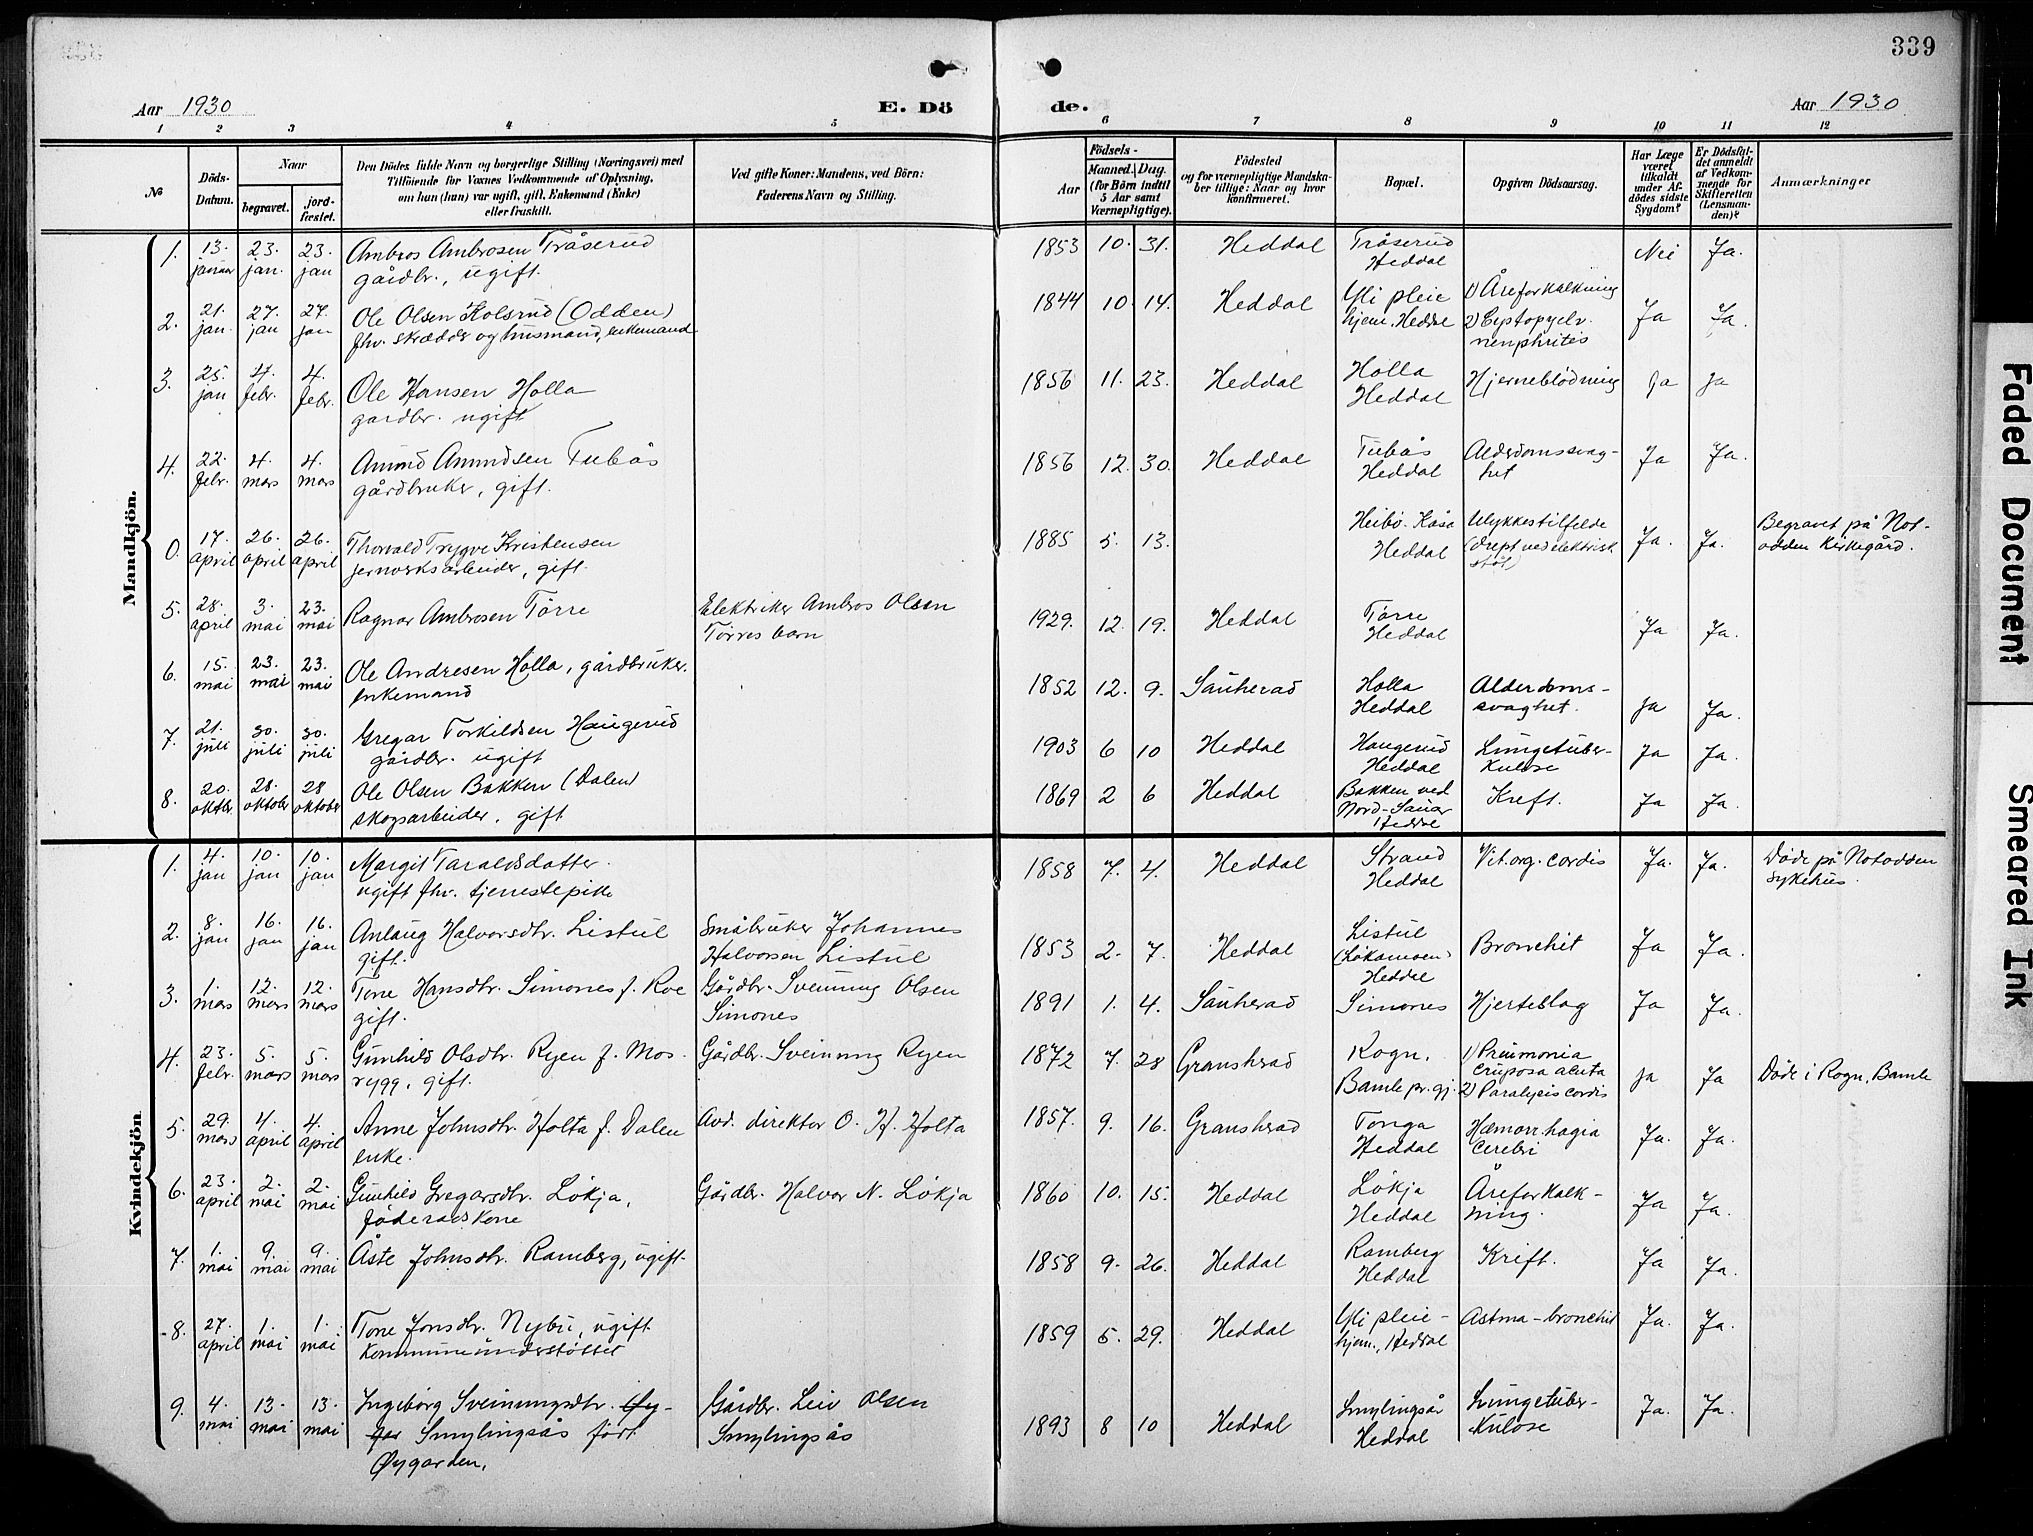 339
Aar 1930
E. Dö
de.
Aar 1930
1 2 3 4 5 6 7 8 9 10 11 12
No
Döds-
Datum.
Naar
begravet.
jord-
fæstet.
Den Dödes fulde Navn og borgerlige Stilling (Næringsvei) med
Tilföiende for Voxnes Vedkommende af Oplysning,
om han (hun) var ugift, gift, Enkemand (Enke)
eller fraskilt.
Ved gifte Koner: Mandens, ved Börn:
Faderens Navn og Stilling.
Födsels-
Aar
Maaned. Dag.
(for Börn indtil
5 Aar samt
Værnepligtige).
Födested
og for værnepligtige Mandska-
ber tillige: Naar og hvor
konfirmeret.
Bopæl.
Opgiven Dödsaarsag.
Har Læge
været
tilkaldt
under Af-
dödes sidste
Sygdom?
Er Dödsfal-
det anmeldt
af Vedkom-
mende for
Skifteretten
(Lensman-
den)?
Anmærkninger
Mandkjön.
1. 13. januar 23. jan. 23. jan
Ambros Ambrosen Tråserud
gårdbr., ugift.
1853 10. 31. Heddal
Tråserud
Heddal
Nei Ja.
2. 21. jan. 27. jan 27. jan
Ole Olsen Kolsrud (Odden)
fhv. skrædder og husmand, enkemand
1844 10. 14. Heddal
Yli pleie
hjem. Heddal
1) Åreforkalkning
2) Cystopyelv.
nenphritis
Ja Ja.
3. 25. jan 4. febr. 4. febr.
Ole Hansen Holla
gardbr. ugift
1856 11. 23. Heddal
Holla
Heddal
Hjerneblödning
Ja ja
4. 22. febr. 4. mars 4. mars
Amund Amundsen Tubås
gårdbruker, gift.
1856 12. 30. Heddal
Tubås
Heddal
Alderdomssvag-
het
Ja Ja.
0. 17. april 26. april 26. april
Thorvald Trygve Kristensen
jernverksarbeider, gift.
1885 5. 13.
Heibö. Kåsa
Heddal
Ulykkestilfelde
(drept ved elektrisk
støt)
Ja. Ja.
Begravet på Not-
odden kirkegård.
5. 28. april 3. mai 23. mai
Ragnar Ambrosen Törre
Elektriker Ambros Olsen
Törres barn
1929. 12. 19. Heddal
Törre
Heddal
Ja Ja.
6. 15. mai 23. mai 23. mai
Ole Andresen Holla, gårdbruker.
enkemand
1852 12. 9. Sauherad
Holla
Heddal
Alderdoms-
svaghet.
ja Ja.
7. 21. juli 30. juli 30. juli
Gregar Torkildsen Haugerud
gårdbr. ugift
1903 6 10 Heddal
Haugerud
Heddal
Lungetuber-
kulose
Ja Ja.
8. 20. oktbr. 28. oktober 28 oktober
Ole Olsen Bakken (Dalen)
skogsarbeider, gift
1869 2 6 Heddal
Bakken ved
Nord-Sauar
Heddal
Kreft.
Ja Ja.
Kvindekjön.
1. 4. jan 10. jan 10. jan
Margit Taraldsdatter.
ugift fhv. tjenestepike
1858 7. 4. Heddal
Strand
Heddal
Vit. org. cordis
Ja. Ja.
Döde på Notodden
sykehus.
2. 8. jan 16. jan 16. jan
Anlaug Halvorsdtr. Listul
gift.
Småbruker Johannes
Halvorsen Listul
1853 2. 7. Heddal
Listul
(Lökamoen)
Heddal
Bronchit
Ja Ja.
3. 1. mars 12. mars 12. mars
Tone Hansdtr. Simones f. Roe
gift.
Gårdbr. Sveinung Olsen
Simones
1891 1. 4. Sauherad
Simones
Hjerteslag
Ja Ja.
4. 23. febr. 5. mars 5. mars
Gunhild Olsdtr. Ryen f. Mos-
rygg, gift.
Gårdbr. Sveinung Ryen
1872 7. 28 Gransherad
Rogn,
Bamle pr.gj.
1) Pneumonia
cruposa acuta
2) Paralysis cordis
ja Ja
Döde i Rogn, Bamle
5. 29. mars 4. april 4. april
Anne Johnsdtr. Holta f. Dalen
enke.
Avd. direktor O. H. Holta
1857. 9. 16. Gransherad
Tonga
Heddal
Hæmorrhagia
cerebri
Ja. Ja.
6. 23. april 2. mai 2. mai
Gunhild Gregarsdtr. Lökja,
föderadskone
Gårdbr. Halvor N. Lökja
1860 10. 15. Heddal
Lökja
Heddal
Åreforkalk-
ning.
Ja Ja.
7. 1. mai 9. mai 9. mai
Åste Johnsdtr. Ramberg, ugift.
1858 9. 26. Heddal
Ramberg
Heddal
Kreft.
Ja Ja.
8. 27. april 1. mai 1. mai
Tone Jonsdtr. Nybu, ugift
kommuneunderstöttet
1859 5. 29. Heddal
Yli pleie-
hjem., Heddal
Astma-bronchit
Ja. Ja.
9. 4. mai 13. mai 13. mai
Ingeborg Sveinungsdtr. Øy-
gar Smylingsås født
Øygarden.
Gårdbr. Leiv Olsen
Smylingsås
1893 8 10 Heddal
Smylingsås
Heddal
Lungetuber-
kulose
Ja. Ja.
Faded Document
Smeared Ink